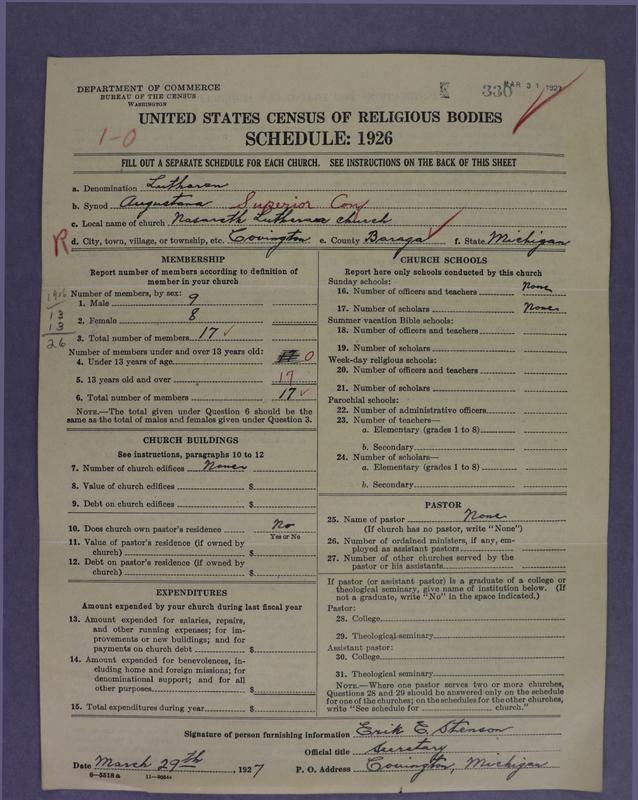 DEPARTMENT OF COMMERCE
BUREAU OF THE CENSUS
WASHINGTON
330 MAR 31 1927
1-0
UNITED STATES CENSUS OF RELIGIOUS BODIES
SCHEDULE: 1926
FILL OUT A SEPARATE SCHEDULE FOR EACH CHURCH. SEE INSTRUCTIONS ON THE BACK OF THIS SHEET
a. Denomination Lutheran
b. Synod Augustana Superior Con
c. Local name of church Nazareth Lutheran church
R d. City, town, village, or township, etc. Covington e. County Baraga f. State Michigan
MEMBERSHIP
Report number of members according to definition of
member in your church
Number of members, by sex:
1. Male 9
2. Female 8
3. Total number of members 17
1916
13
13
26
Number of members under and over 13 years old:
4. Under 13 years of age 17 0
5. 13 years old and over 17
6. Total number of members 17
NOTE.—The total given under Question 6 should be the
same as the total of males and females given under Question 3.
CHURCH BUILDINGS
See instructions, paragraphs 10 to 12
7. Number of church edifices None
8. Value of church edifices $
9. Debt on church edifices $
10. Does church own pastor's residence No
Yes or No
11. Value of pastor's residence (if owned by
church) $
12. Debt on pastor's residence (if owned by
church) $
EXPENDITURES
Amount expended by your church during last fiscal year
13. Amount expended for salaries, repairs,
and other running expenses; for im-
provements or new buildings; and for
payments on church debt $
14. Amount expended for benevolences, in-
cluding home and foreign missions; for
denominational support; and for all
other purposes $
15. Total expenditures during year $
CHURCH SCHOOLS
Report here only schools conducted by this church
Sunday schools:
16. Number of officers and teachers None
17. Number of scholars None
Summer vacation Bible schools:
18. Number of officers and teachers
19. Number of scholars
Week-day religious schools:
20. Number of officers and teachers
21. Number of scholars
Parochial schools:
22. Number of administrative officers
23. Number of teachers—
a. Elementary (grades 1 to 8)
b. Secondary
24. Number of scholars—
a. Elementary (grades 1 to 8)
b. Secondary
PASTOR
25. Name of pastor None
(If church has no pastor, write "None")
26. Number of ordained ministers, if any, em-
ployed as assistant pastors
27. Number of other churches served by the
pastor or his assistants
If pastor (or assistant pastor) is a graduate of a college or
theological seminary, give name of institution below. (If
not a graduate, write "No" in the space indicated.)
Pastor:
28. College
29. Theological seminary
Assistant pastor:
30. College
31. Theological seminary
NOTE.—Where one pastor serves two or more churches,
Questions 28 and 29 should be answered only on the schedule
for one of the churches; on the schedules for the other churches,
write "See schedule for church."
Signature of person furnishing information Erik E. Stenson
Official title Secretary
Date March 29th, 1927 P. O. Address Covington, Michigan